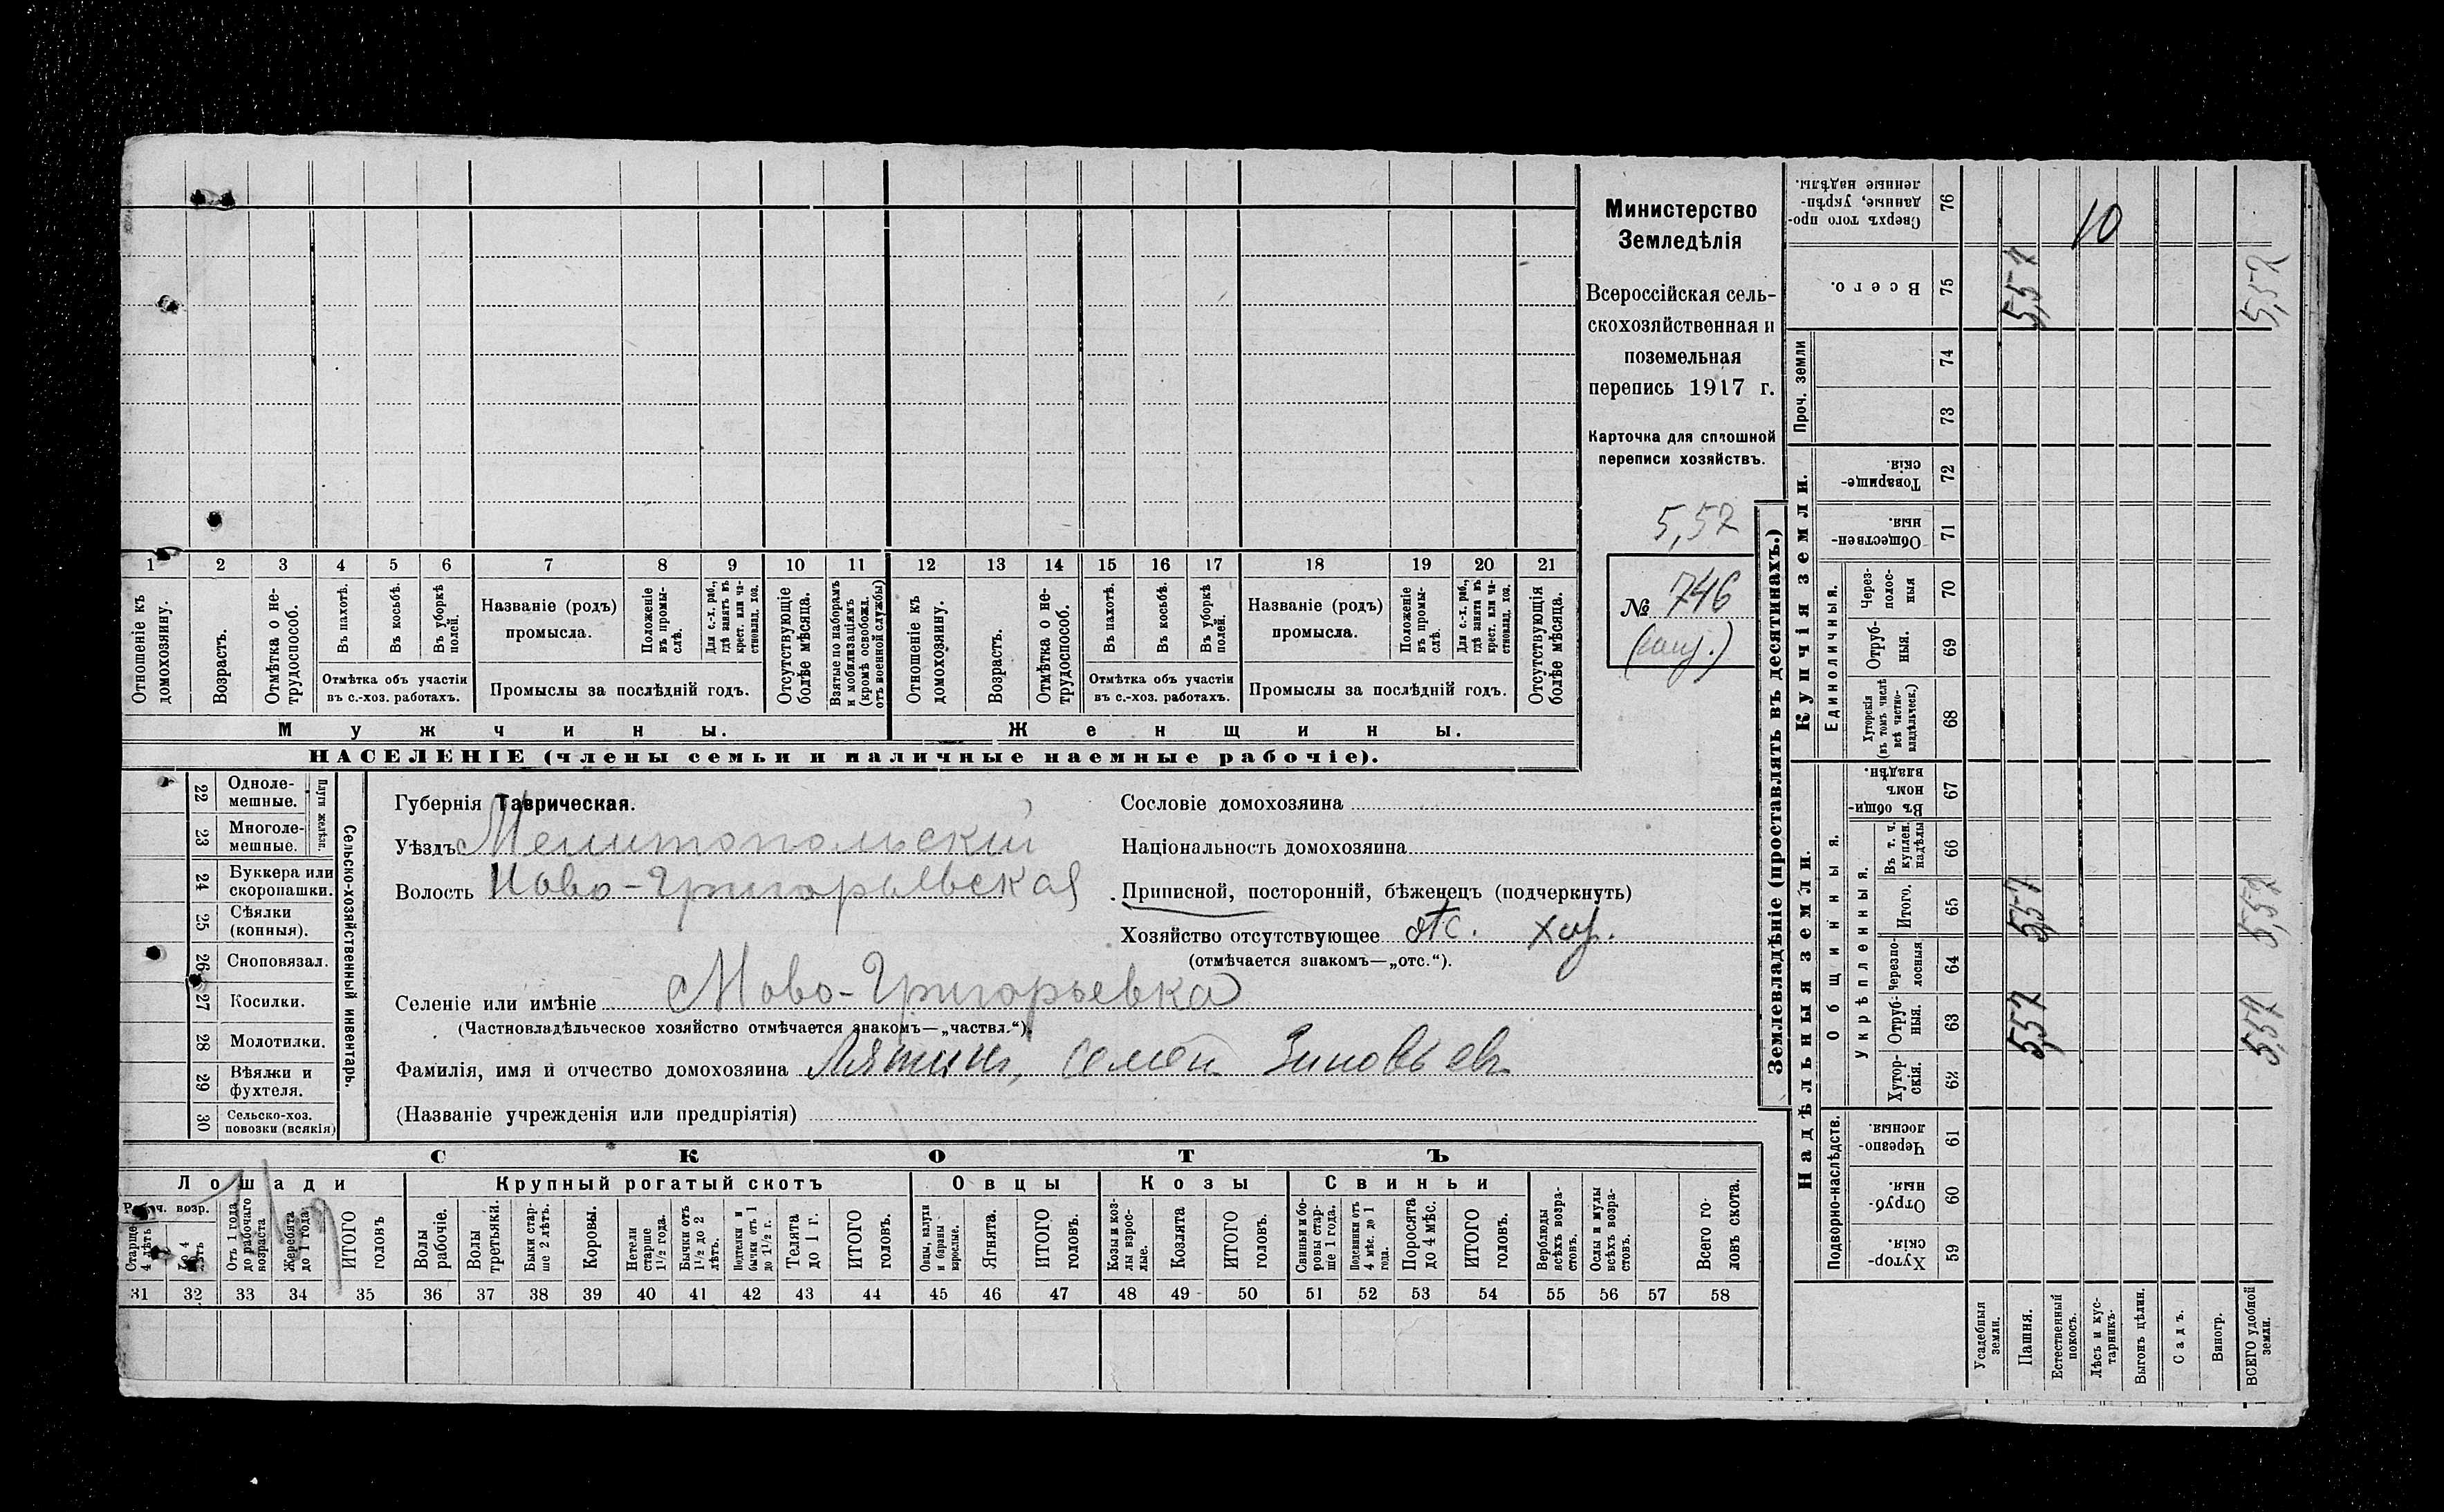 Министерство
Земледѣлія
Всероссійская сель-
скохозяйственная и
поземельная
перепись 1917 г.
Карточка для сплошной
переписи хозяйствъ.
5,57
№ 746
1 2 3 4 5 6 7 8 9 10 11 12 13 14 15 16 17 18 19 20 21
Отношеніе къ домохозяину.
Возрастъ.
Отмѣтка о не-трудоспособ.
Въ пахотѣ.
Въ косьбѣ.
Въ уборкѣ полей.
Отмѣтка объ участіи
въ с.-хоз. работахъ.
Названіе (родъ)
промысла.
Положеніе въ промы-слѣ.
Для с.-х. раб., гдѣ занятъ въ крест. или ча-стновлад. хоз.
Промыслы за послѣдній годъ.
Отсутствующіе болѣе мѣсяца.
Взятые по наборамъ и мобилизаціямъ (кромѣ освобожд. отъ военной службы)
Отношеніе къ домохозяину.
Возрастъ.
Отмѣтка о не-трудоспособ.
Въ пахотѣ.
Въ косьбѣ.
Въ уборкѣ полей.
Отмѣтка объ участіи
въ с.-хоз. работахъ.
Названіе (родъ)
промысла.
Положеніе въ промы-слѣ.
Для с.-х. раб., гдѣ занята въ крест. или ча-стновлад. хоз.
Промыслы за послѣдній годъ.
Отсутствующія болѣе мѣсяца.
Мужчины.
Женщины.
НАСЕЛЕНІЕ (члены семьи и наличные наемные рабочіе).
22 Одноле-мешные.
23 Многоле-мешные.
Плуги желѣзн.
24 Буккера или скоропашки.
25 Сѣялки (конныя).
26 Сноповязал.
27 Косилки.
28 Молотилки.
29 Вѣялки и фухтеля.
30 Сельско-хоз. повозки (всякія)
Сельско-хозяйственный инвентарь.
Губернія Таврическая.
Уѣздъ Мелитопольскій
Волость Ново-Григорьевская
Селеніе или имѣніе Ново-Григорьевка
(Частновладѣльческое хозяйство отмѣчается знакомъ—„частвл.“).
Фамилія, имя и отчество домохозяина Лятинъ, Семен Зиновьевъ
(Названіе учрежденія или предпріятія)
Сословіе домохозяина
Національность домохозяина
Приписной, посторонній, бѣженецъ (подчеркнуть)
Хозяйство отсутствующее отс. хут.
(отмѣчается знакомъ—„отс.“).
СКОТЪ
Лошади
Рабоч. возр.
Старше 4 лѣтъ
До 4 лѣтъ
Отъ 1 года до рабочаго возраста
Жеребята до 1 года
ИТОГО головъ
Крупный рогатый скотъ
Волы рабочіе.
Волы третьяки.
Быки стар-ше 2 лѣтъ.
Коровы.
Нетели старше 1½ года.
Бычки отъ 1½ до 2 лѣтъ.
Подтелки и бычки отъ 1 до 1½ г.
Телята до 1 г.
ИТОГО головъ.
Овцы
Овцы, валухи и бараны взрослые.
Ягнята.
ИТОГО головъ.
Козы
Козы и коз-лы взрос-лые.
Козлята
ИТОГО головъ.
Свиньи
Свиньи и бо-ровы стар-ше 1 года.
Подсвинки отъ 4 мѣс. до 1 года.
Поросята до 4 мѣс.
ИТОГО головъ.
Верблюды всѣхъ возра-стовъ.
Ослы и мулы всѣхъ возра-стовъ.
Всего го-ловъ скота.
31 32 33 34 35 36 37 38 39 40 41 42 43 44 45 46 47 48 49 50 51 52 53 54 55 56 57 58
Землевладѣніе (проставлять въ десятинахъ.)
Надѣльныя земли.
Купчія земли.
Проч. земли
Подворно-наслѣдств.
Общинныя.
Укрѣпленныя.
Единоличныя.
59 Хутор-скія.
60 Отруб-ныя.
61 Черезпо-лосныя.
62 Хутор-скія.
63 Отруб-ныя.
64 Черезпо-лосныя
65 Итого.
66 Въ т. ч. куплен. надѣлы
67 Въ общи-номъ владѣн.
68 Хуторскія (въ томъ числѣ всѣ частно-владѣльческ.)
69 Отруб-ныя.
70 Через-полос-ныя
71 Обществен-ныя.
72 Товарище-скія.
73
74
75 Всего.
76 Сверхъ того про-данные, укрѣп-ленные надѣлы.
Усадебныя земли.
Пашня.
Естественный покосъ.
Лѣсъ и кус-тарникъ.
Выгонъ цѣлин.
Садъ.
Виногр.
ВСЕГО удобной земли.
5,57 5,57 5,57
10
5,57 5,57 5,57